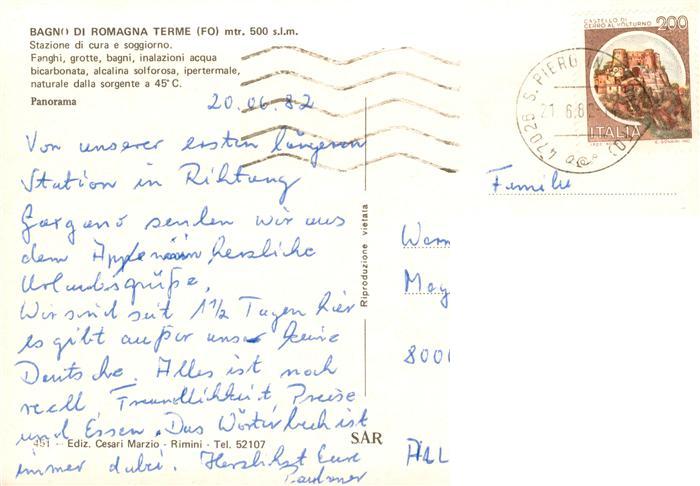 BAGNO DI ROMAGNA TERME (FO) mtr. 500 s.l.m.
Stazione di cura e soggiorno.
Fanghi, grotte, bagni, inalazioni acqua
bicarbonata, alcalina solforosa, ipertermale,
naturale dalla sorgente a 45°C.
Panorama
20.06.82
Von unserer ersten längeren
Station in Richtung
Gargano senden wir aus
dem Appennin herzliche
Urlaubsgrüße.
Wir sind seit 1 1/2 Tagen hier
es gibt außer uns keine
Deutsche. Alles ist noch
reell Freundlichkeit, Preise
und Essen. Das Wörterbuch ist
immer dabei. Herzlichst Eure
491 - Ediz. Cesari Marzio - Rimini - Tel. 52107
SAR
Riproduzione vietata
CASTELLO DI
CERRO AL VOLTURNO
200
ITALIA
47026 S. PIERO IN
21.6.82
Familie
8001